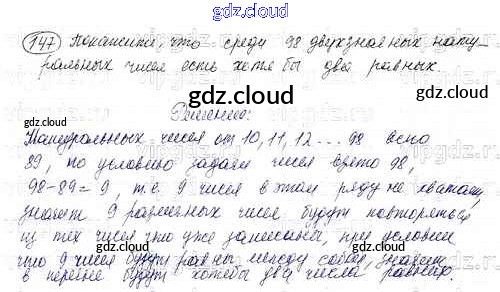 gdz.cloud
147 Покажите, что среди 98 двухзначных нату-
ральных чисел есть хотя бы два равных.
gdz.cloud
Решение:
gdz.cloud
Натуральных чисел от 10, 11, 12 ... 98 всего
89, по условию задачи чисел всего 98,
98-89=9, т.е. 9 чисел в этом ряду не хватает,
значит 9 различных чисел будут повторяться
из тех чисел что уже записаны, при условии
что 9 чисел будут равны между собой, значит
в перечне будут хотябы два числа равных.
gdz.cloud